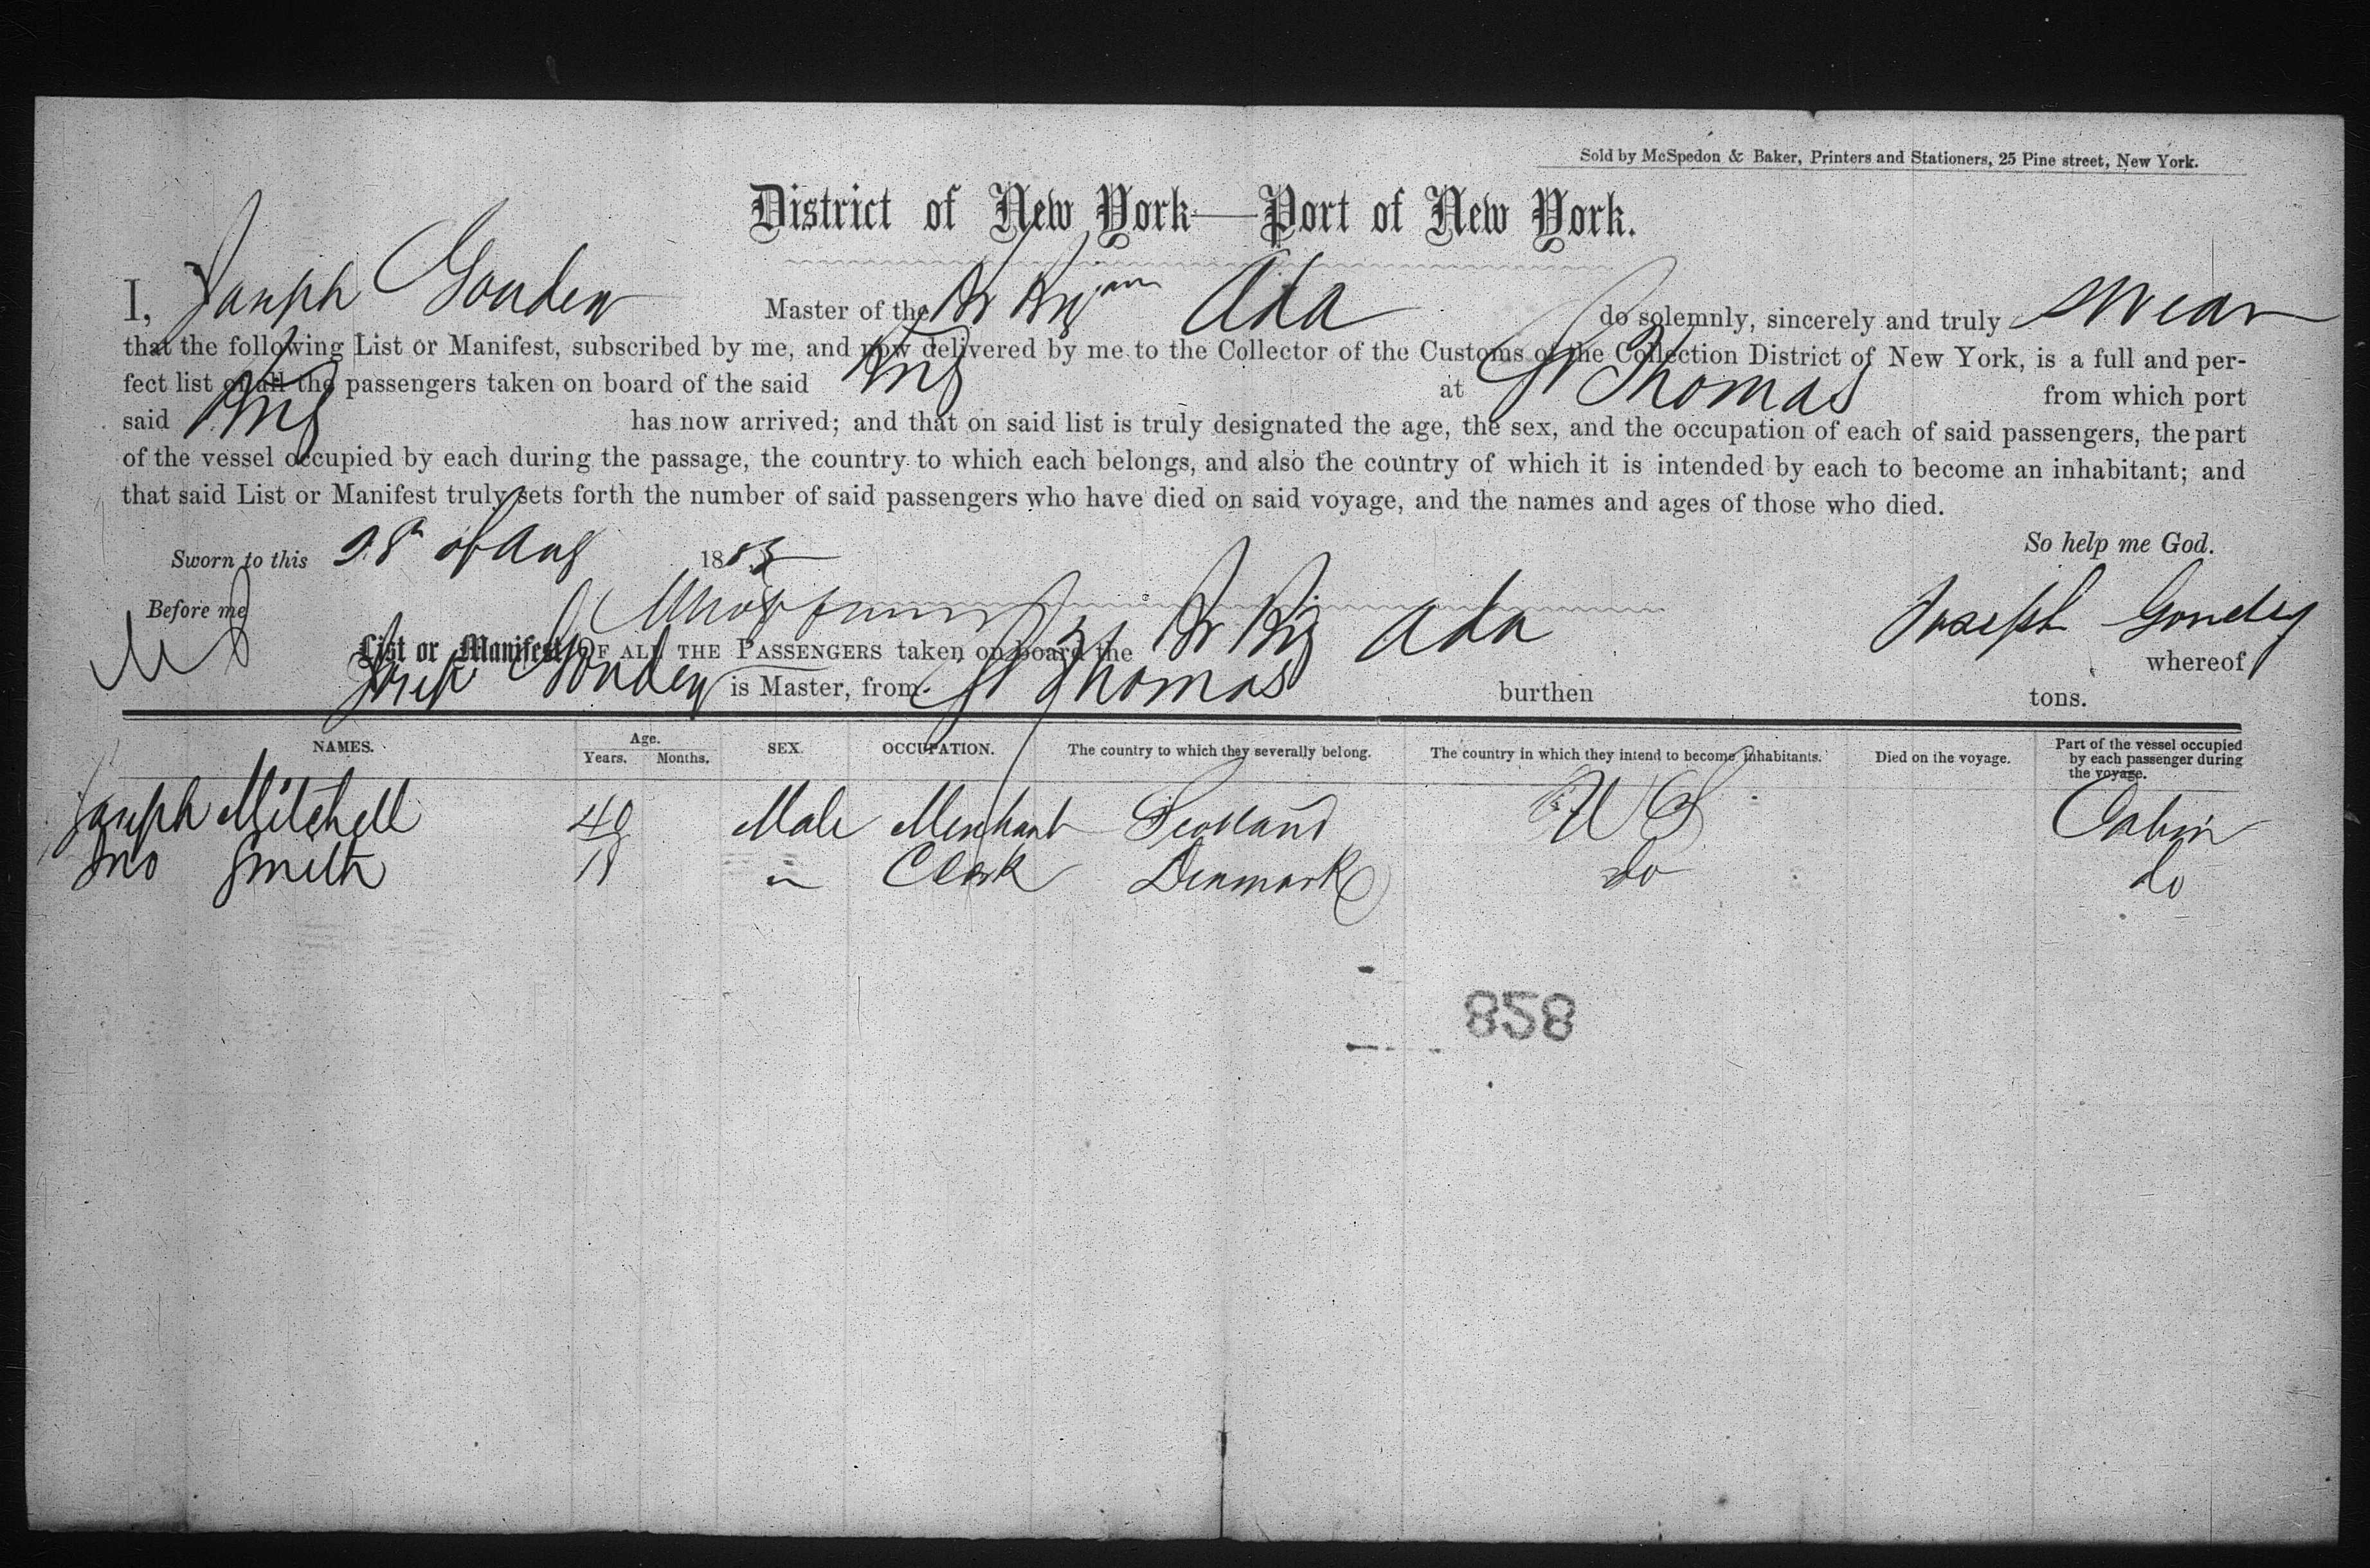 Sold by McSpedon & Baker, Printers and Stationers, 25 Pine street, New York.
District of New York—Port of New York.
I, Joseph Gouden Master of the Br Brig Ada do solemnly, sincerely and truly swear
that the following List or Manifest, subscribed by me, and now delivered by me to the Collector of the Customs of the Collection District of New York, is a full and per-
fect list of all the passengers taken on board of the said Brig at St Thomas from which port
said Brig has now arrived; and that on said list is truly designated the age, the sex, and the occupation of each of said passengers, the part
of the vessel occupied by each during the passage, the country to which each belongs, and also the country of which it is intended by each to become an inhabitant; and
that said List or Manifest truly sets forth the number of said passengers who have died on said voyage, and the names and ages of those who died.
So help me God.
Sworn to this 28th of Aug 1855
Before me
Joseph
List or Manifest OF ALL THE PASSENGERS taken on board the Br Brig Ada whereof
is Master, from St Thomas burthen tons.
NAMES. Age. Years. Months. SEX. OCCUPATION. The country to which they severally belong. The country in which they intend to become inhabitants. Died on the voyage. Part of the vessel occupied by each passenger during the voyage.
Joseph Mitchell 40 Male Merchant Scotland U S Cabin
Jno Smith 18 " Clerk Denmark do do
858